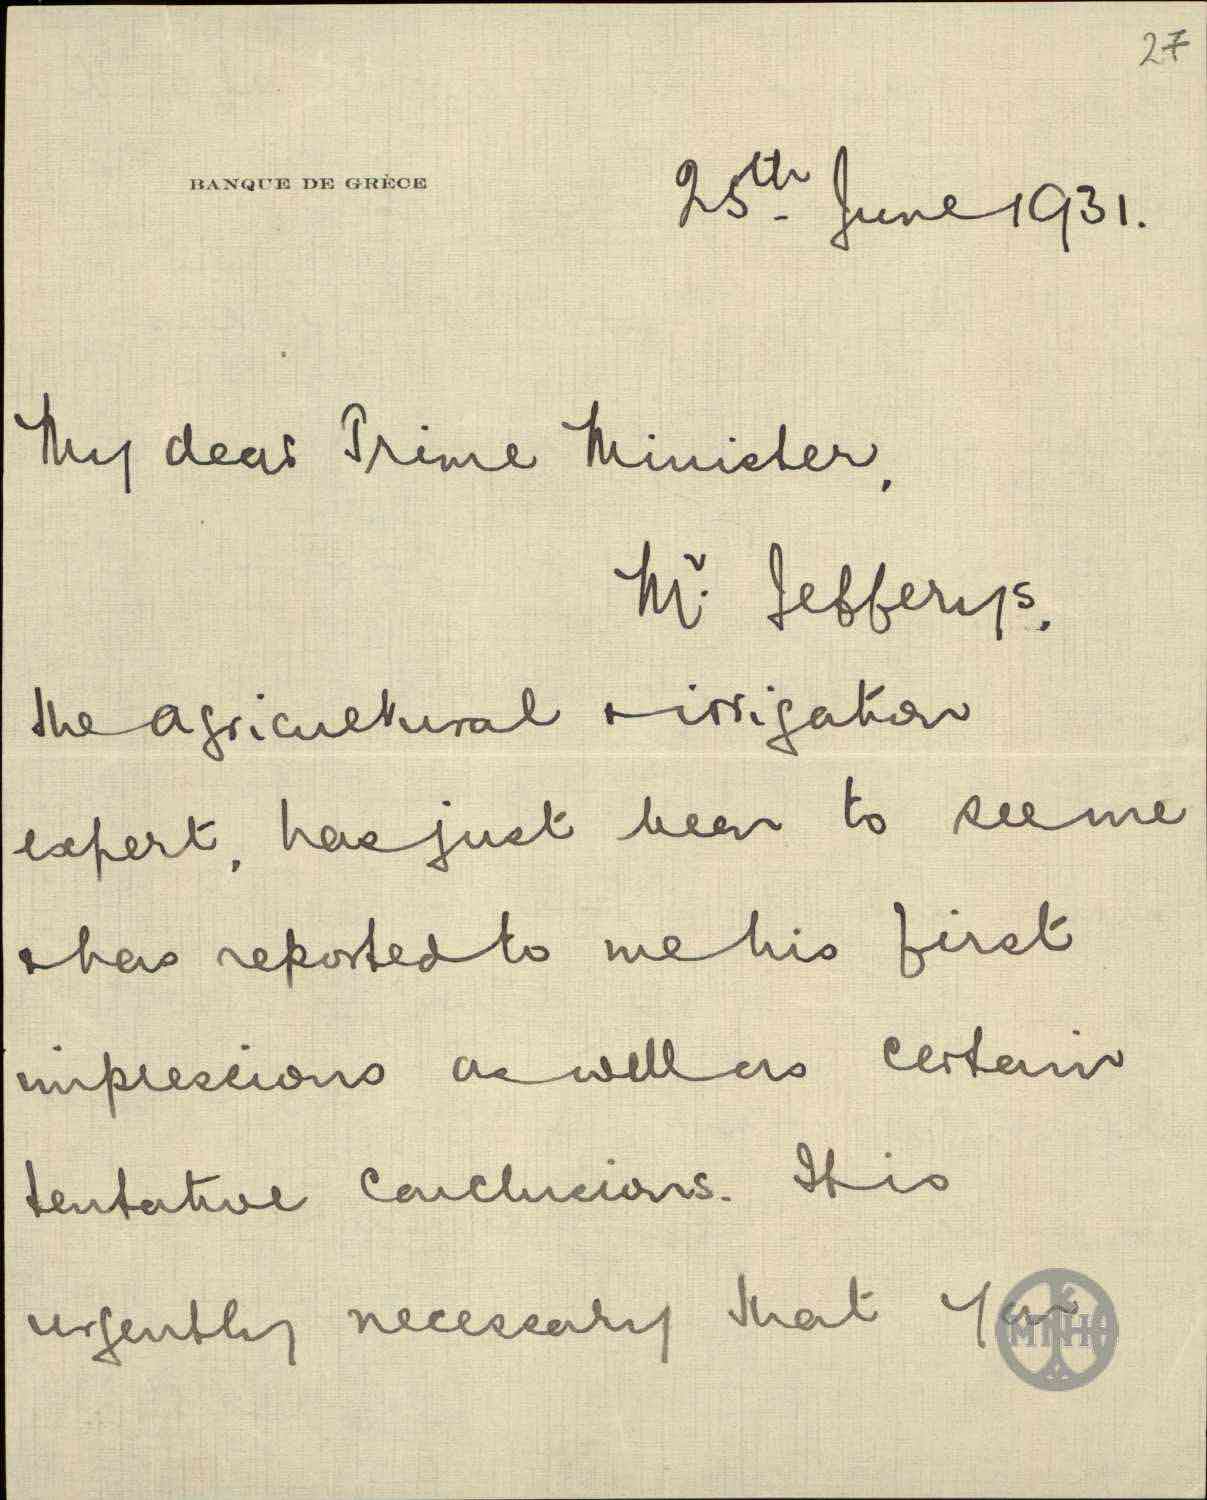 27
BANQUE DE GRÈCE
25th June 1931.
My dear Prime Minister,
Mr. Jefferys,
the agricultural & irrigation
expert, has just been to see me
& has reported to me his first
impressions as well as certain
tentative conclusions. It is
urgently necessary that you